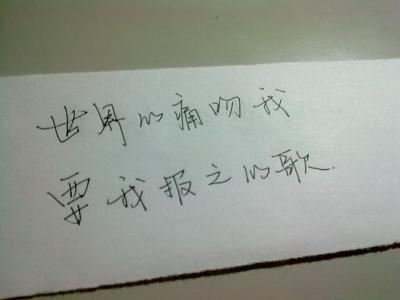 世界以痛吻我
要我报之以歌.